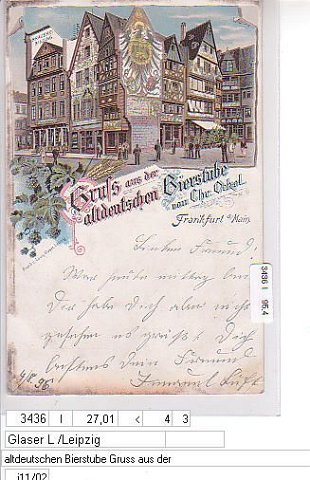 Gruss aus der
altdeutschen Bierstube
von Chr.
Frankfurt a/Main.
Lieben Freund!
War heute mittag bei
Dir habe Dich aber nicht
es grüßt Dich
bestens Dein Freund
96
3436 I 96,4
3436 I 27,01 < 4 3
Glaser L /Leipzig
altdeutschen Bierstube Gruss aus der
j11/02